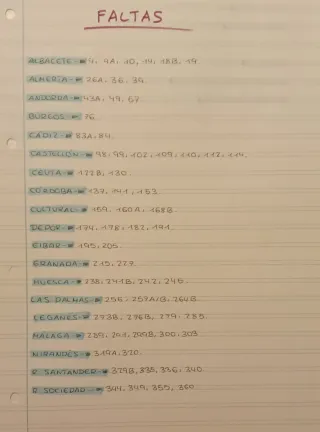 FALTAS
ALBACETE - 4, 4A, 10, 14, 18B, 19
ALMERÍA - 26A, 36, 39
ANDORRA - 43A, 49, 57
BURGOS - 76
CÁDIZ - 83A, 84
CASTELLÓN - 98, 99, 102, 109, 110, 112, 114
CEUTA - 122B, 130
CÓRDOBA - 137, 141, 153
CULTURAL - 159, 160A, 168B
DEPOR - 174, 178, 182, 191
EIBAR - 195, 205
GRANADA - 215, 227
HUESCA - 238, 241B, 242, 245
LAS PALMAS - 256, 257A/B, 264B
LEGANÉS - 273B, 276B, 279, 285
MÁLAGA - 289, 291, 299B, 300, 303
MIRANDÉS - 319A, 320
R. SANTANDER - 329B, 335, 336, 340
R. SOCIEDAD - 344, 349, 355, 360